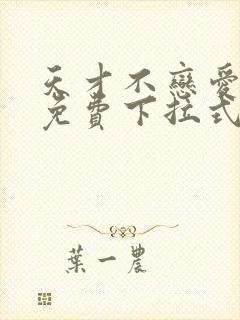 天才不戀愛
免費下拉式
葉一農